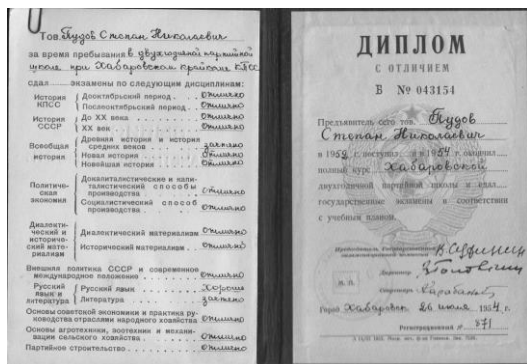 Тов. Пудов Степан Николаевич
за время пребывания в двухгодичной партийной
школе при Хабаровском крайкоме КПСС
сдал экзамены по следующим дисциплинам:
История КПСС
Дооктябрьский период отлично
Послеоктябрьский период отлично
История СССР
До XX века отлично
XX век отлично
Всеобщая история
Древняя история и история
средних веков зачтено
Новая история отлично
Новейшая история отлично
Политическая экономия
Докапиталистические и капи-
талистический способы
производства отлично
Социалистический способ
производства отлично
Диалектический и исторический материализм
Диалектический материализм отлично
Исторический материализм отлично
Внешняя политика СССР и современное
международное положение отлично
Русский язык и литература
Русский язык хорошо
Литература зачтено
Основы советской экономики и практика ру-
ководства отраслями народного хозяйства отлично
Основы агротехники, зоотехники и механи-
зации сельского хозяйства отлично
Партийное строительство отлично
ДИПЛОМ
С ОТЛИЧИЕМ
Б № 043154
Предъявитель сего тов. Пудов
Степан Николаевич
в 1952 г. поступил и в 1954 г. окончил
полный курс Хабаровской
двухгодичной партийной школы и сдал
государственные экзамены в соответствии
с учебным планом.
Председатель Государственной
экзаменационной комиссии
Директор
Секретарь
М. П.
Город Хабаровск 26 июля 1954 г.
Регистрационный № 871